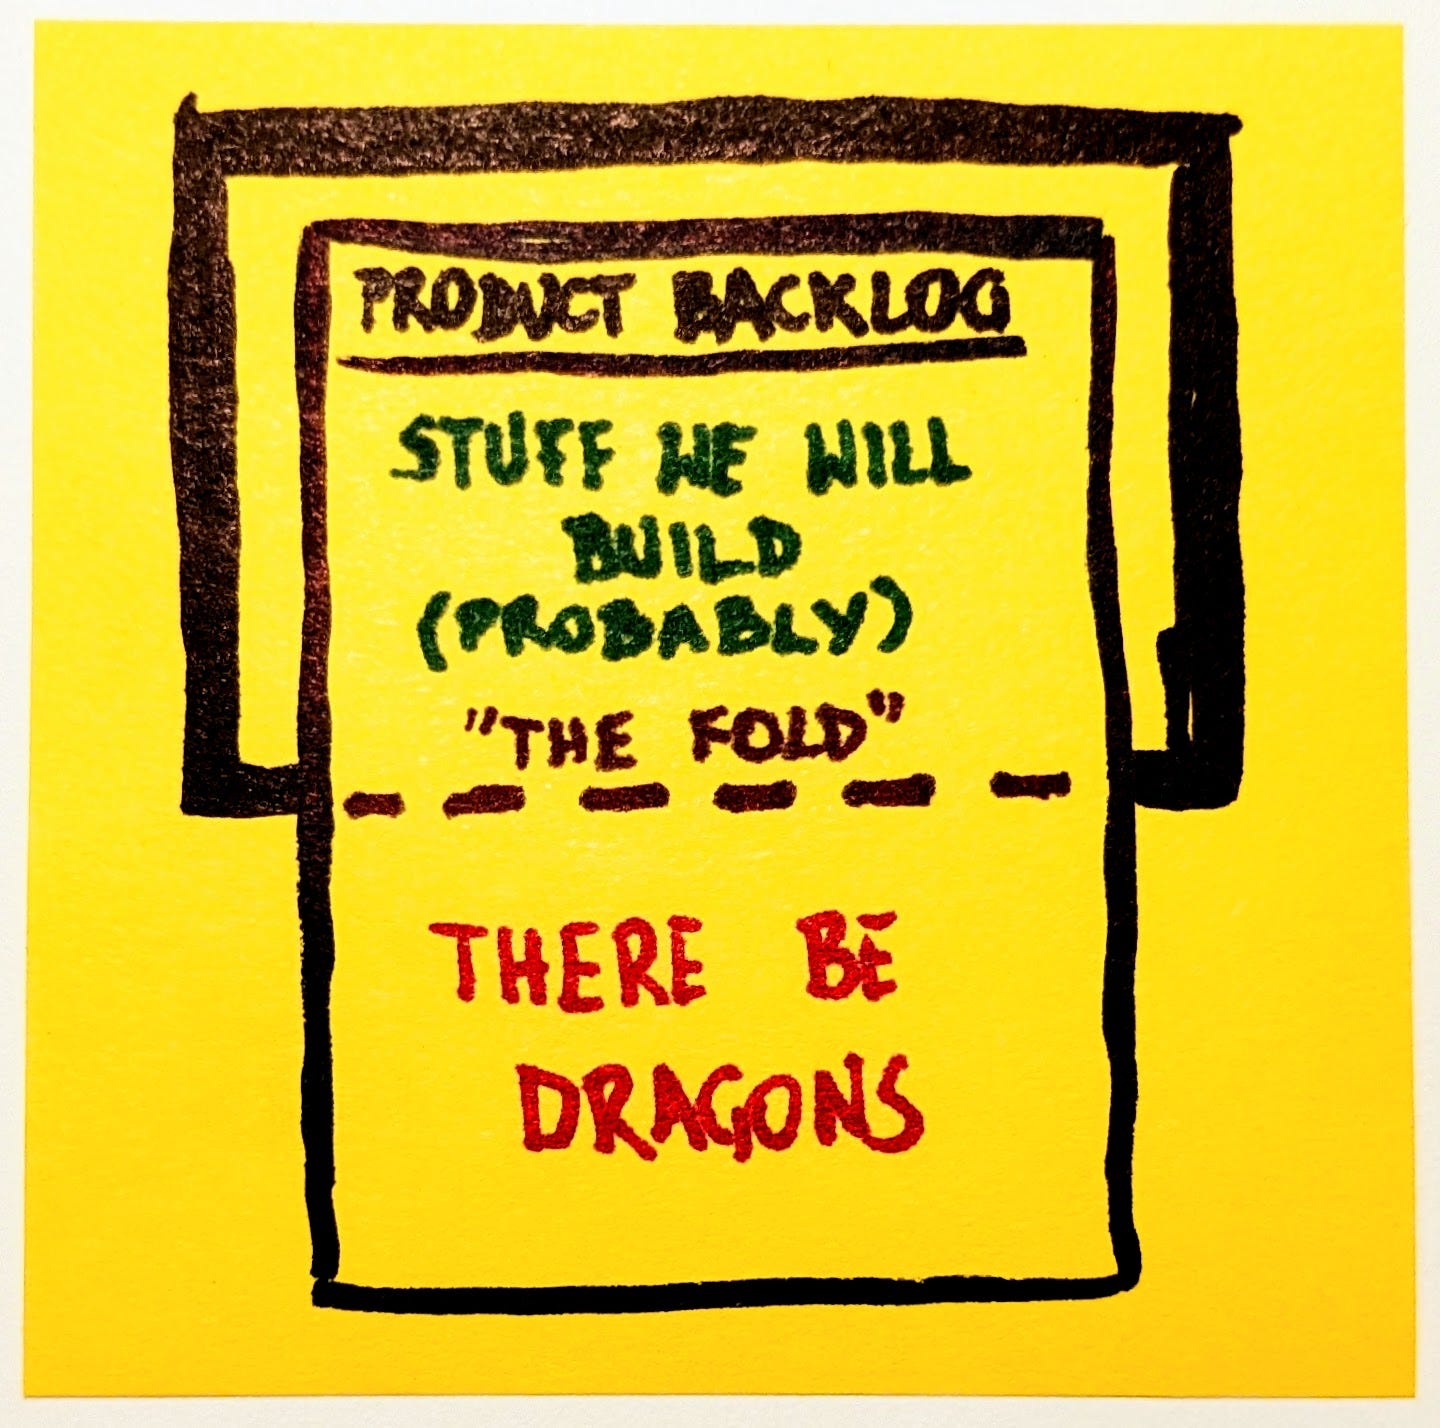 PRODUCT BACKLOG
STUFF WE WILL
BUILD
(PROBABLY)
"THE FOLD"
THERE BE
DRAGONS